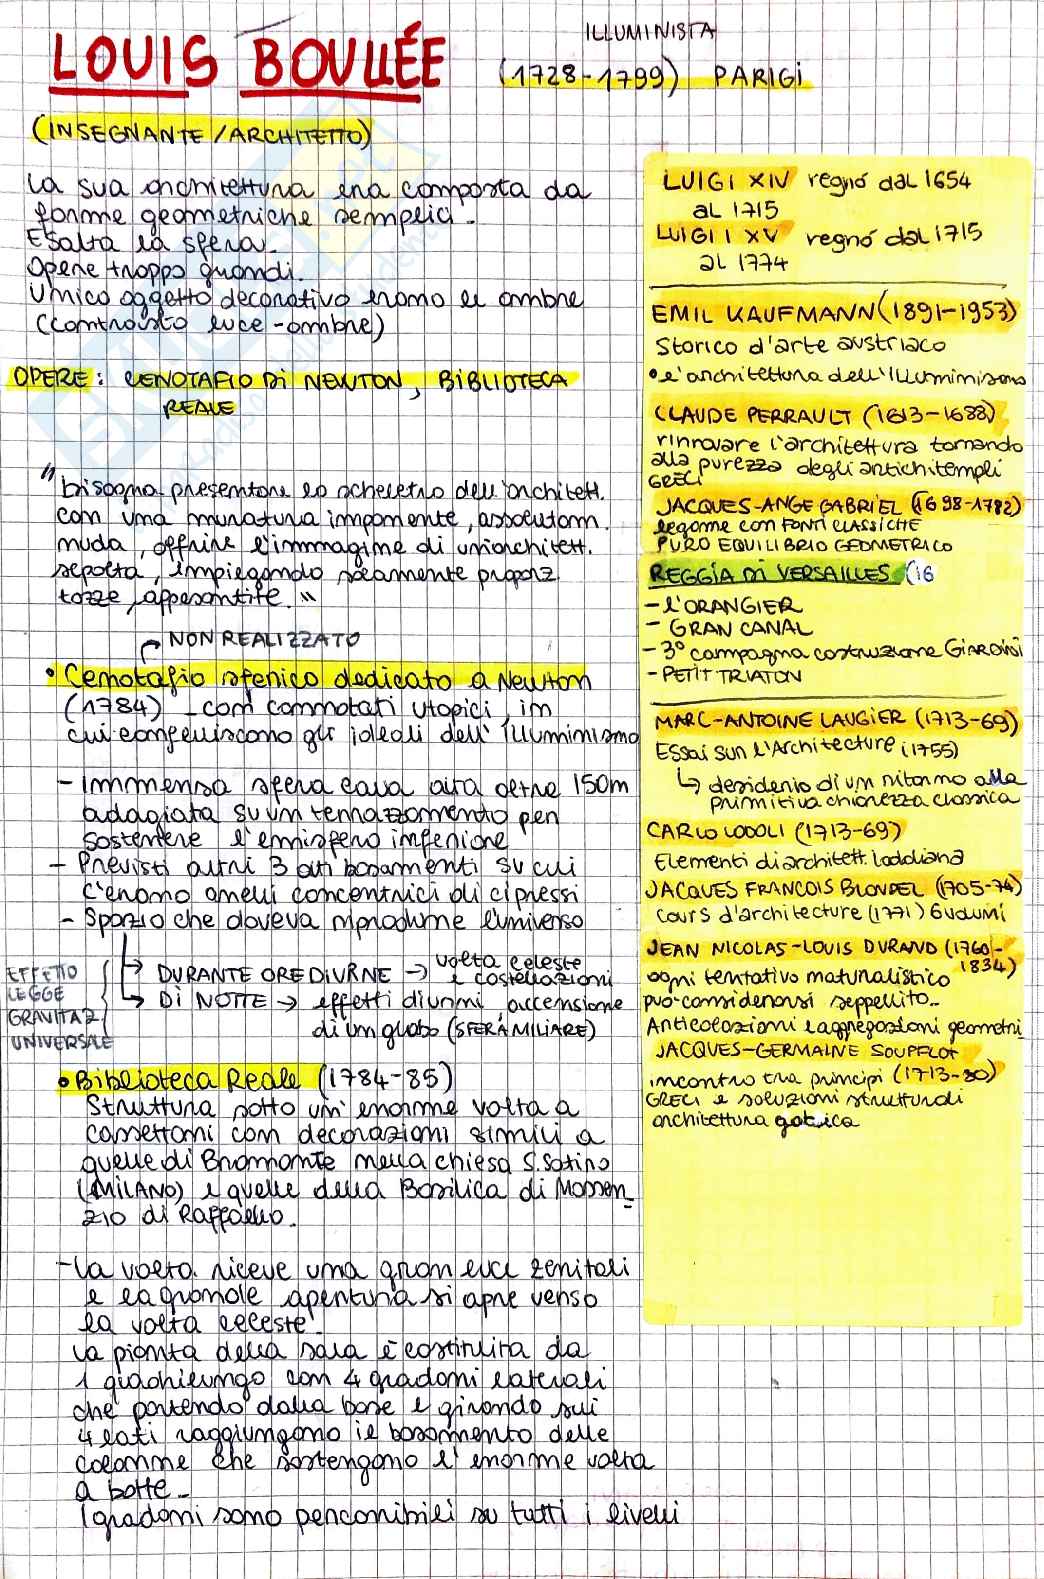 ILLUMINISTA
LOUIS BOULLÉE (1728-1799) PARIGI
(INSEGNANTE/ARCHITETTO)
La sua architettura era composta da
forme geometriche semplici.
Esalta la sfera.
Opere troppo grandi.
Unico oggetto decorativo erano le ombre
(contrasto luce-ombre)
OPERE: CENOTAFIO DI NEWTON, BIBLIOTECA
REALE
"bisogna presentare lo scheletro dell'architett.
con una muratura imponente, assolutam.
nuda, offrire l'immagine di un'architett.
sepolta, impiegando solamente proporz
tozze, appesantite."
NON REALIZZATO
• Cenotafio sferico dedicato a Newton
(1784) - con connotati utopici, in
cui confluiscono gli ideali dell'illuminismo
- immensa sfera cava alta oltre 150m
adagiata su un terrazzamento per
sostenere l'emisfero inferiore
- Previsti altri 3 alti basamenti su cui
c'erano anelli concentrici di cipressi
- Spazio che doveva riprodurre l'universo
EFFETTO
LEGGE
GRAVITAZ
UNIVERSALE
↳ DURANTE ORE DIURNE → volta celeste
e costellazioni
↳ DI NOTTE → effetti diurni, accensione
di un globo (SFERA MILIARE)
• Biblioteca Reale (1784-85)
Struttura sotto un'enorme volta a
cassettoni con decorazioni simili a
quelle di Bramante nella chiesa S. Satiro
(MILANO) e quelle della Basilica di Massen-
zio di Raffaello.
- La volta riceve una gran luce zenitali
e la grande apertura si apre verso
la volta celeste.
La pianta della sala è costituita da
4 gradoni laterali
che partendo dalla base e girando sui
4 lati raggiungono il basamento delle
colonne che sostengono l'enorme volta
a botte.
I gradoni sono percorribili su tutti i livelli
LUIGI XIV regnó dal 1654
AL 1715
LUIGI XV regnó dal 1715
AL 1774
EMIL KAUFMANN (1891-1953)
Storico d'arte austriaco
• l'architettura dell'Illuminismo
CLAUDE PERRAULT (1613-1688)
rinnovare l'architettura tornando
alla purezza degli antichi templi
GRECI
JACQUES-ANGE GABRIEL (1698-1782)
legame con FONTI CLASSICHE
PURO EQUILIBRIO GEOMETRICO
REGGIA DI VERSAILLES (16
- L'ORANGIER
- GRAN CANAL
- 3° campagna costruzione Giardini
- PETIT TRIATON
MARC-ANTOINE LAUGIER (1713-69)
Essai sur l'Architecture (1755)
↳ desiderio di un ritorno alla
primitiva chiarezza classica
CARLO LODOLI (1713-69)
Elementi di architett. lodoliana
JACQUES FRANCOIS BLONDEL (1705-74)
Cours d'architecture (1771) 6 volumi
JEAN NICOLAS-LOUIS DURAND (1760-
1834)
ogni tentativo naturalistico
può considerarsi seppellito.
Anticolazioni e aggregazioni geometri
JACQUES-GERMAINE SOUFFLOT
incontro tra principi (1713-80)
GRECI e soluzioni strutturali
architettura gotica